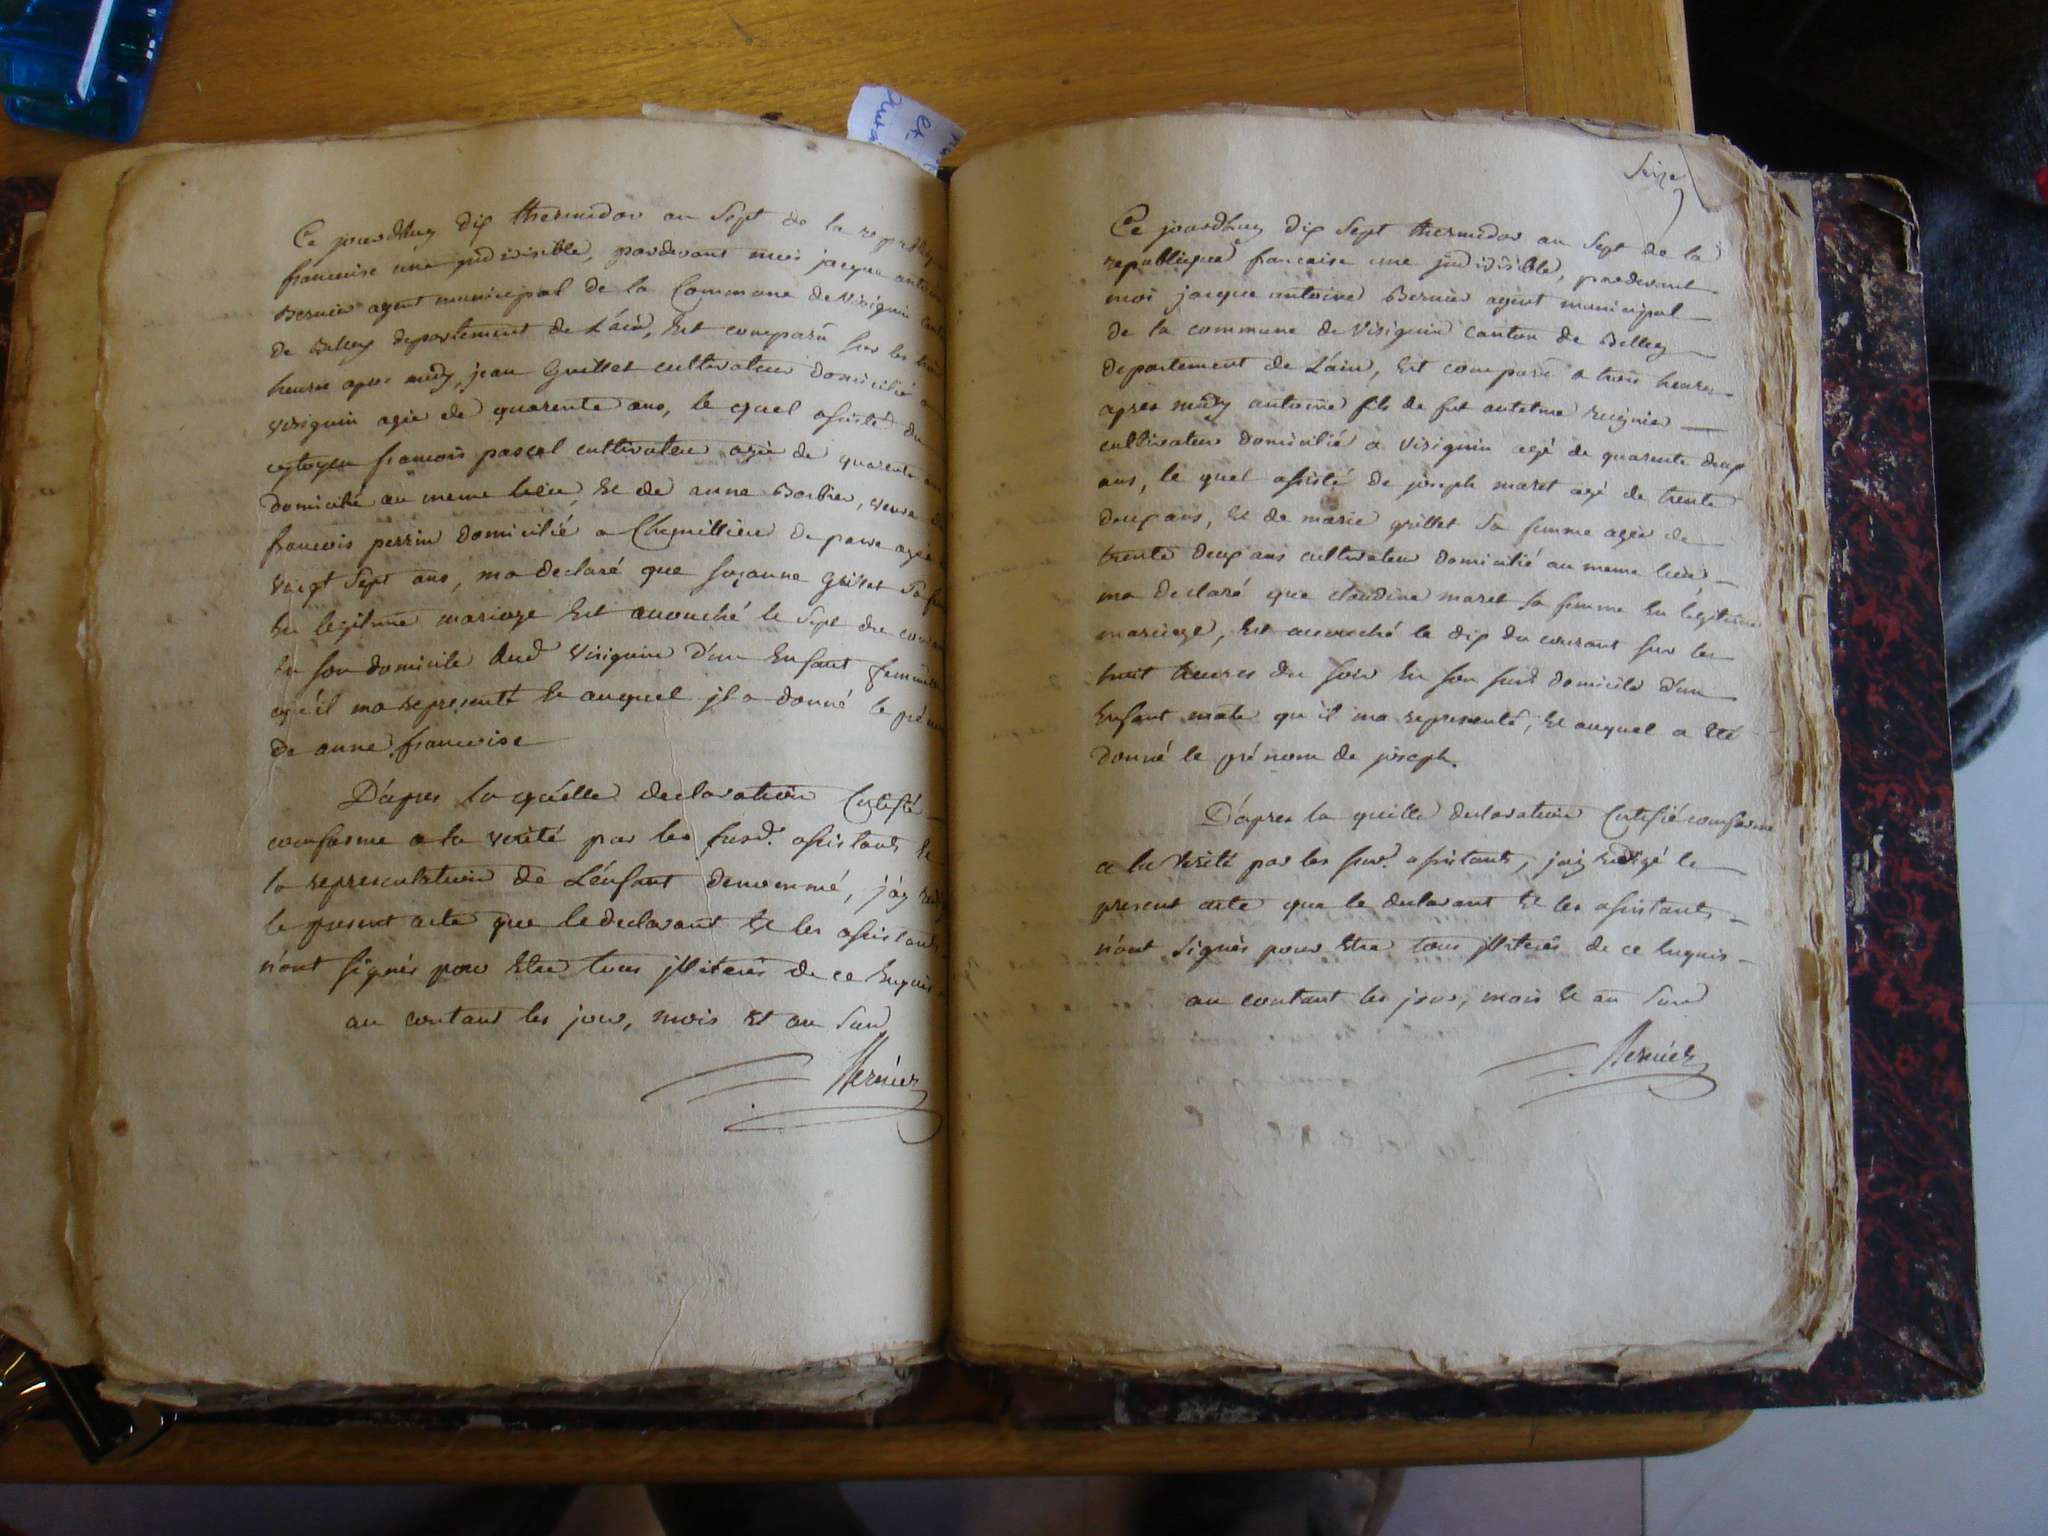 Ce jourdhuy dix thermidor an sept de la republique
francaise une jndivisible, pardevant moi jacque antoine
Bernier agent municipal de la Commune de Virignin canton
de Belley departement de L'ain, Est comparu sur les trois
heures apres midy, jean Grillet cultivateur domicilié a
virignin agé de quarente ans, le quel assisté du
citoyen francois pascal cultivateur agé de quarente ans
domicilié au meme lieu, Et de anne Barbier, veuve de
francois perrin domicilié a de parve agée
vingt sept ans, ma declaré que suzanne Grillet sa
En legitime mariage Est accouché le sept du courant
En son domicile Aud. Virignin d'un Enfant femmelle
qu'il ma representé Et auquel jl a donné le prénom
de anne francoise
D'apres la quélle declaration Certifié
conforme a la verité par les susd. assistants Et
la representation de L'enfant denommé, j'ay
le present acte que le declarant Et les assistants
n'ont signés pour Etre tous jlliterés de ce Enquis
au contant les jour, mois Et an Susd
Bernier
Seize
Ce jourdhuy dix Sept thermidor an Sept de la
republique francaise une jndivisible, pardevant
moi jacque antoine Bernier agent municipal
de la commune de Virignin Canton de Belley
departement de L'ain, Est comparu a trois heures
apres midy antoine fils de fut antelme
cultivateur domicilié a Virignin agé de quarente deux
ans, le quel assisté de joseph maret agé de trente
deux ans, Et de marie grillet sa femme agée de
trente deux ans cultivateur domicilié au meme lieu
ma declaré que claudine maret sa femme En legitime
mariage, Est accouché le dix du courant sur les
huit heures du soir En son susd domicile d'un
Enfant male qu'il ma representé, Et auquel a Eté
donné le prénom de joseph.
D'apres la quelle declaration Certifié conforme
a la Verité par les susd. assistants, j'ay redigé le
present acte que le declarant Et les assistants
n'ont signés pour Etre tous jlliterés de ce Enquis
au contant les jour, mois Et an Susd
Bernier